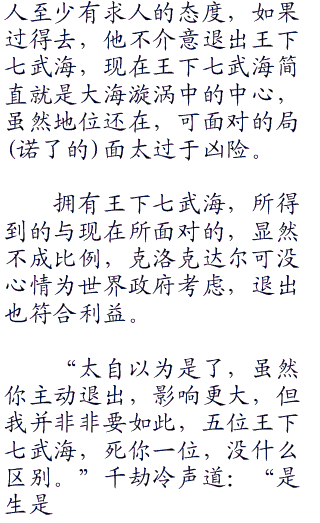 人至少有求人的态度，如果
过得去，他不介意退出王下
七武海，现在王下七武海简
直就是大海漩涡中的中心，
虽然地位还在，可面对的局
(诺了的)面太过于凶险。
拥有王下七武海，所得
到的与现在所面对的，显然
不成比例，克洛克达尔可没
心情为世界政府考虑，退出
也符合利益。
“太自以为是了，虽然
你主动退出，影响更大，但
我并非非要如此，五位王下
七武海，死你一位，没什么
区别。”千劫冷声道：“是
生是